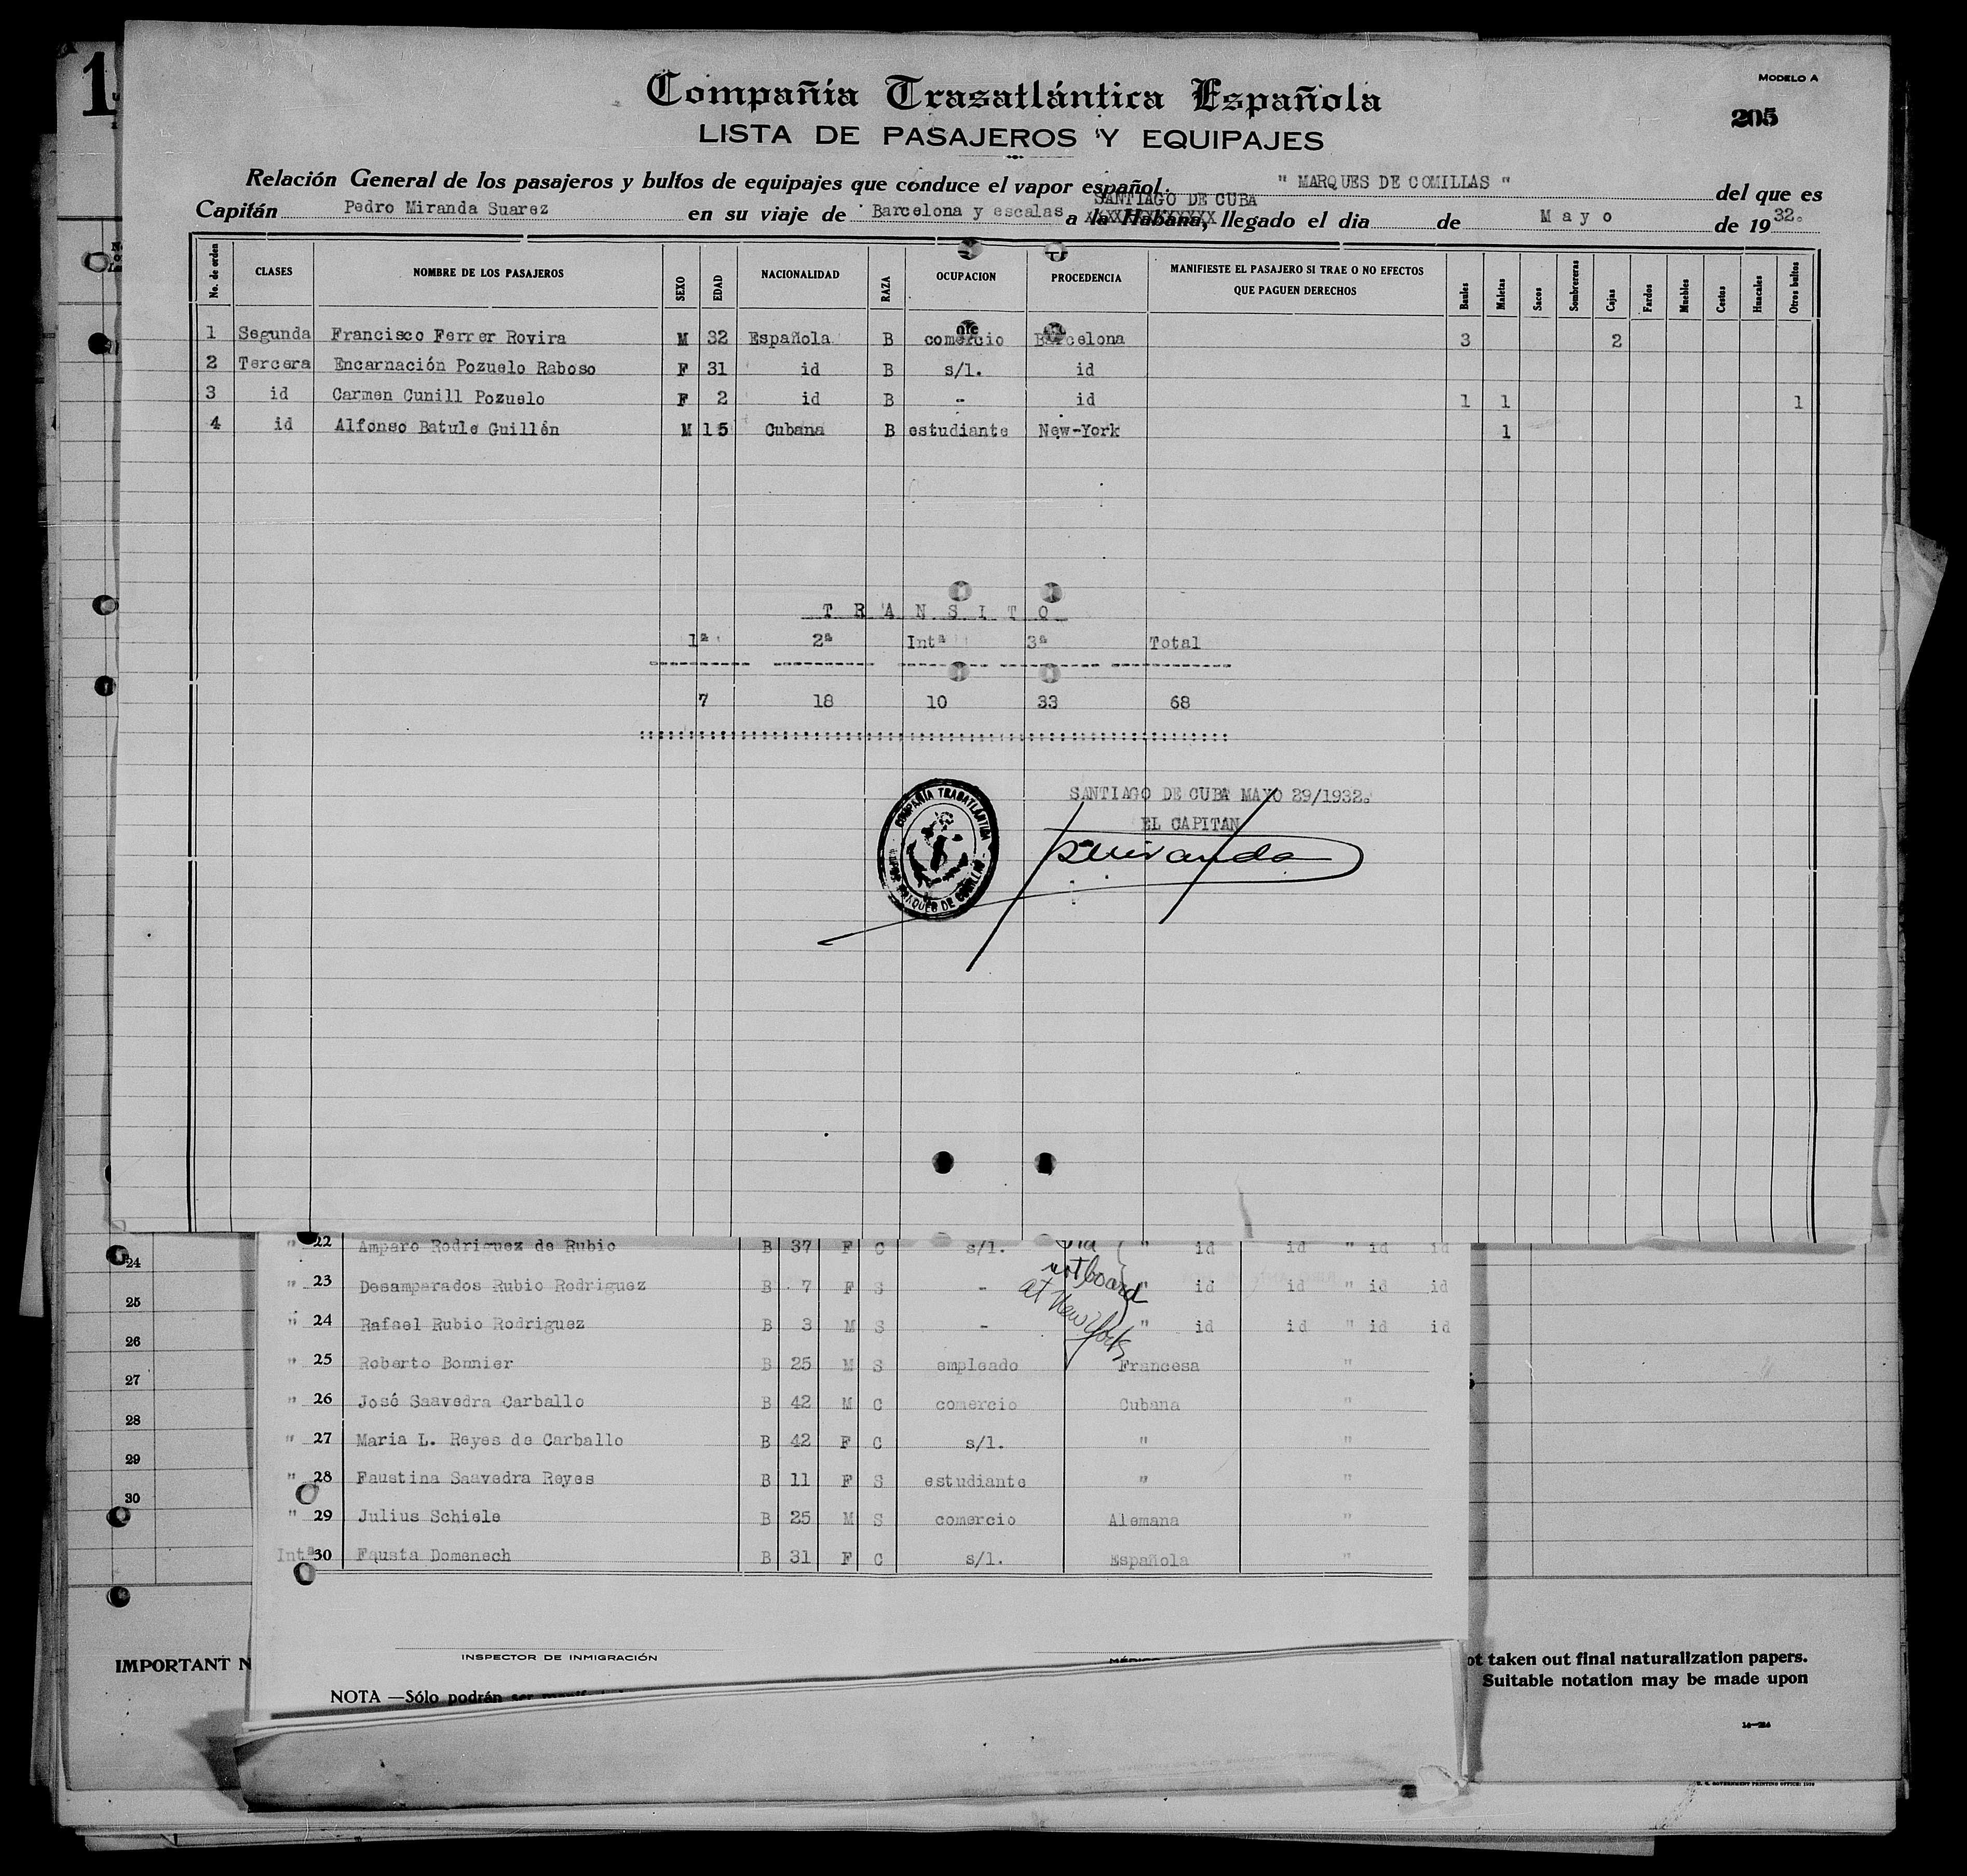 1
MODELO A
Compañía Trasatlántica Española
205
LISTA DE PASAJEROS Y EQUIPAJES
Relación General de los pasajeros y bultos de equipajes que conduce el vapor español " MARQUES DE COMILLAS " del que es
SANTIAGO DE CUBA
Capitán Pedro Miranda Suarez en su viaje de Barcelona y escalas a la Habana, llegado el dia de Mayo de 1932.
No. de orden CLASES NOMBRE DE LOS PASAJEROS SEXO EDAD NACIONALIDAD RAZA OCUPACION PROCEDENCIA MANIFIESTE EL PASAJERO SI TRAE O NO EFECTOS QUE PAGUEN DERECHOS Baules Maletas Sacos Sombrereras Cajas Fardos Muebles Cestos Huacales Otros bultos
1 Segunda Francisco Ferrer Rovira M 32 Española B comercio Barcelona 3 2
2 Tercera Encarnación Pozuelo Raboso F 31 id B s/l. id
3 id Carmen Cunill Pozuelo F 2 id B - id 1 1 1
4 id Alfonso Batule Guillén M 15 Cubana B estudiante New-York 1
T R A N S I T O
1ª 2ª Intª 3ª Total
7 18 10 33 68
SANTIAGO DE CUBA MAYO 29/1932.
EL CAPITAN
COMPAÑIA TRASATLÁNTICA
VAPOR MARQUES DE COMILLAS
PMiranda
" 22 Amparo Rodriguez de Rubio B 37 F C s/l. " id id " id id
" 23 Desamparados Rubio Rodriguez B 7 F S - " id id " id id
" 24 Rafael Rubio Rodriguez B 3 M S - " id id " id id
Did
not board
at New York
" 25 Roberto Bonnier B 25 M S empleado Francesa "
" 26 José Saavedra Carballo B 42 M C comercio Cubana "
" 27 Maria L. Reyes de Carballo B 42 F C s/l. " "
" 28 Faustina Saavedra Reyes B 11 F S estudiante " "
" 29 Julius Schiele B 25 M S comercio Alemana "
Intª 30 Fausta Domenech B 31 F C s/l. Española "
24
25
26
27
28
29
30
INSPECTOR DE INMIGRACIÓN
NOTA —Sólo podrán ser
IMPORTANT N
ot taken out final naturalization papers.
Suitable notation may be made upon
U. S. GOVERNMENT PRINTING OFFICE: